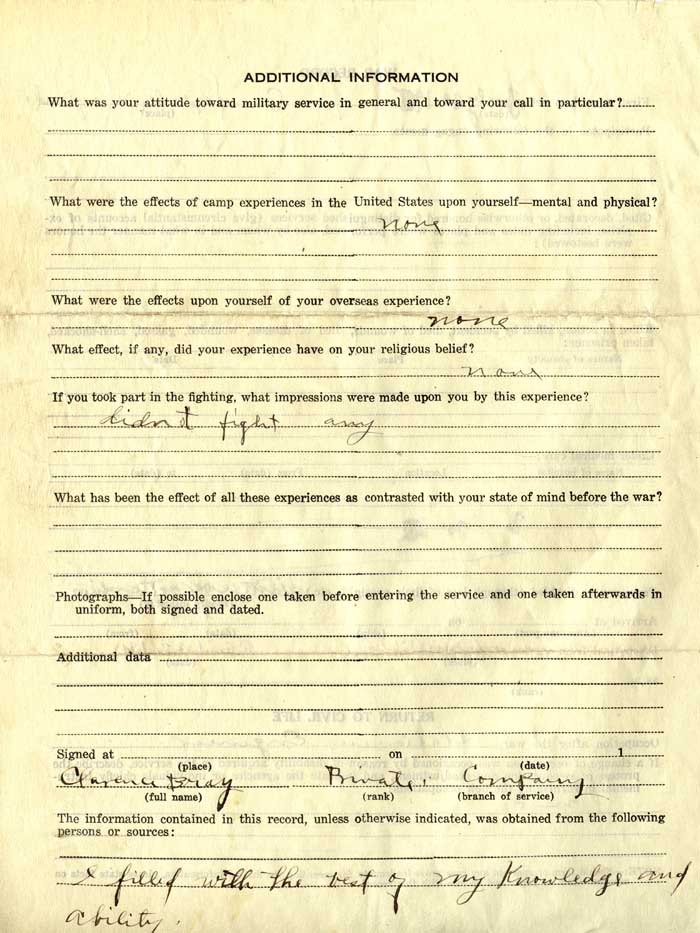 ADDITIONAL INFORMATION
What was your attitude toward military service in general and toward your call in particular?
What were the effects of camp experiences in the United States upon yourself—mental and physical?
none
What were the effects upon yourself of your overseas experience?
none
What effect, if any, did your experience have on your religious belief?
none
If you took part in the fighting, what impressions were made upon you by this experience?
didn't fight any
What has been the effect of all these experiences as contrasted with your state of mind before the war?
Photographs—If possible enclose one taken before entering the service and one taken afterwards in
uniform, both signed and dated.
Additional data
Signed at on 1
(place) (date)
Clarence Bray Private, Company
(full name) (rank) (branch of service)
The information contained in this record, unless otherwise indicated, was obtained from the following
persons or sources:
I filled with the best of my Knowledge and
ability.